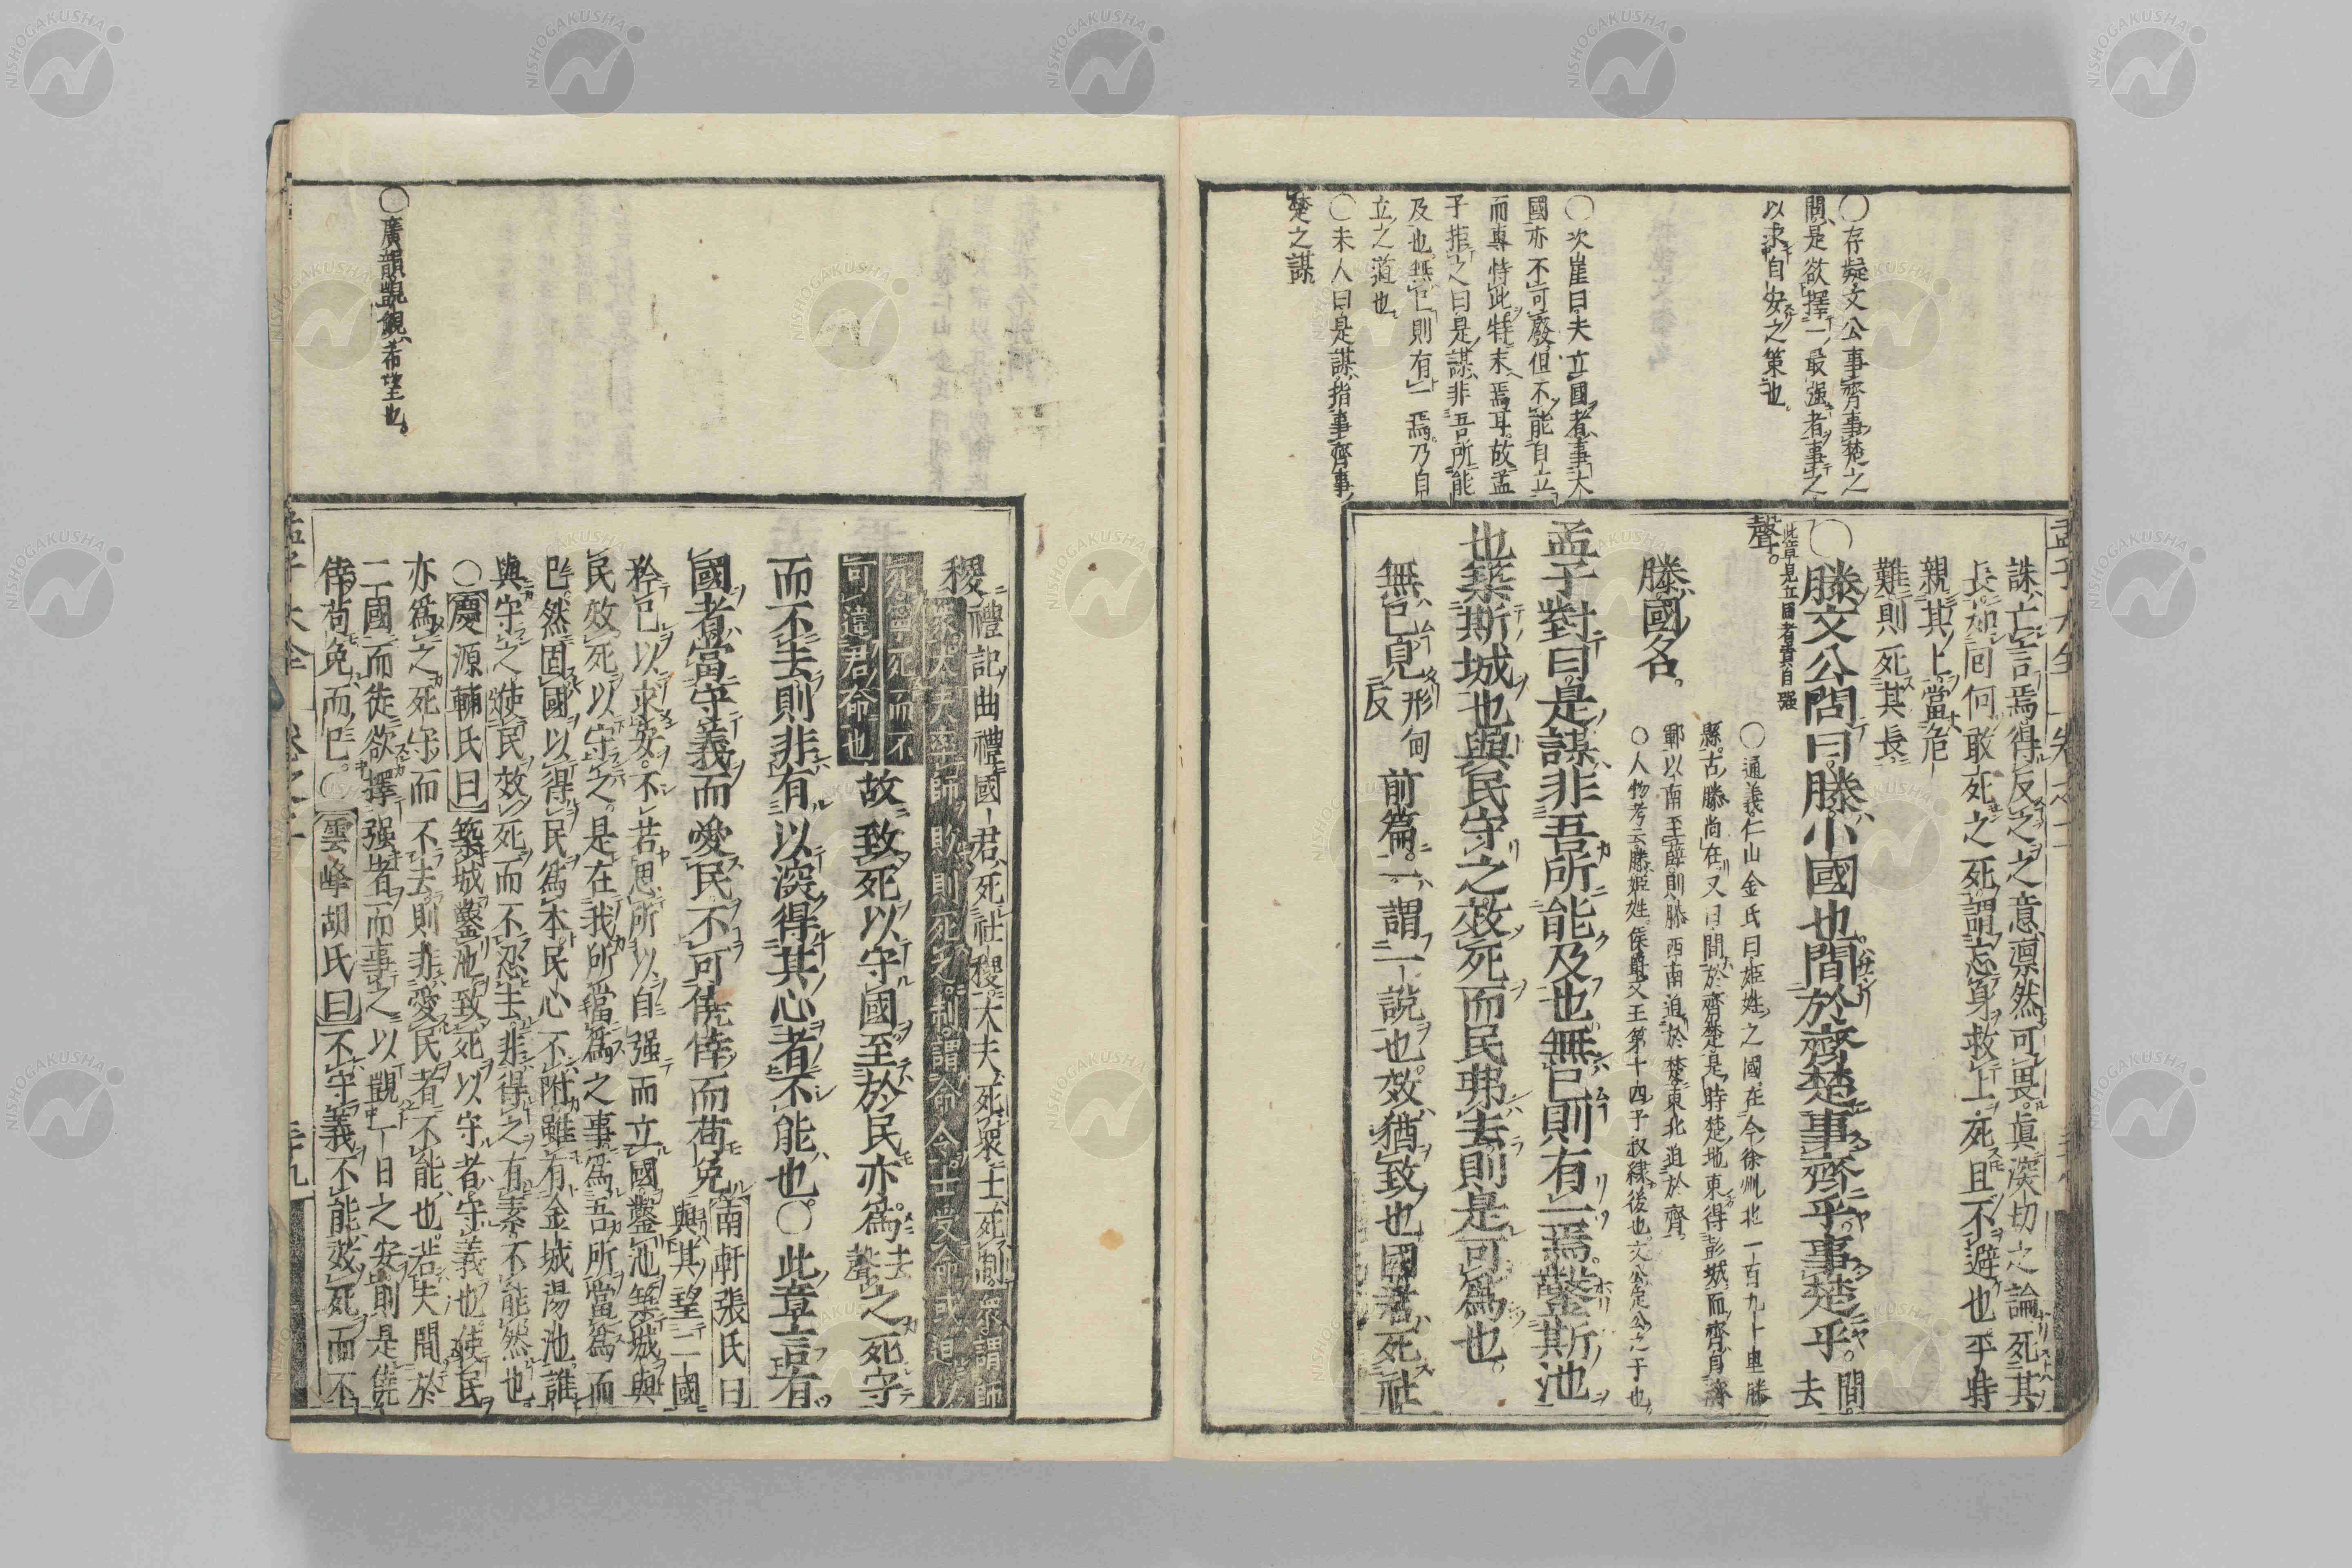 〇存疑文公事齊事楚之
問是欲擇一最强者事之
以求自安之策也
〇次崖曰夫立國者事大
國亦不可廢但不能自立
而專恃此特末焉耳故孟
子拒之曰是謀非吾所能
及也無已則有一焉乃自
立之道也
〇未人曰是謀指事齊事
楚之謀
誅亡言焉得反之之意凛然可畏眞深切之論死其
長如何敢死之死謂忘身救上死且不避也平時
親其上當危
難則死其長
〇滕文公問曰滕小國也間於齊楚事齊乎事楚乎 間去
此章見立國者貴自强
聲
〇通義仁山金氏曰姬姓之國在今徐州北一百九十里滕
縣古滕尚在又曰間於齊楚是時楚地東得彭城而齊自濟
鄆以南至薛則滕西南迫於楚東北迫於齊
滕國名
〇人物考云滕姬姓侯爵文王第十四子叔繍後也文公定公之子也
孟子對曰是謀非吾所能及也無已則有一焉鑿斯池
也築斯城也與民守之效死而民弗去則是可爲也
無已見形甸反前篇一謂一說也效猶致也國君死社
稷禮記曲禮國君死社稷大夫死衆士死制衆謂師
衆大夫率師敗則死之制謂命令士受命或迫以
死寧死而不
可違君命也
故致死以守國至於民亦爲去聲之死守
而不去則非有以深得其心者不能也〇此章言有
國者當守義而愛民不可僥倖而苟免南軒張氏曰
與其望二國
矜已以求安不若思所以自强而立國鑿池築城與
民效死以守之是在我所當爲之事爲吾所當爲而
已然固國以得民爲本民心不附雖有金城湯池誰
與守之使民效死而不忍去非得之有素不能然也
〇慶源輔氏曰築城鑿池致死以守者守義也使民
亦爲之死守而不去則非愛民者不能也若失間於
二國而徒欲擇强者而事之以覬一日之安則是僥
倖苟免而已〇雲峰胡氏曰不守義不能效死而不
〇廣韻覬覦希望也